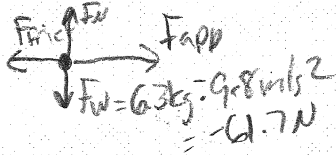 F_N
F_fric F_app
F_W = 6.3kg · 9.8m/s²
= -61.7N